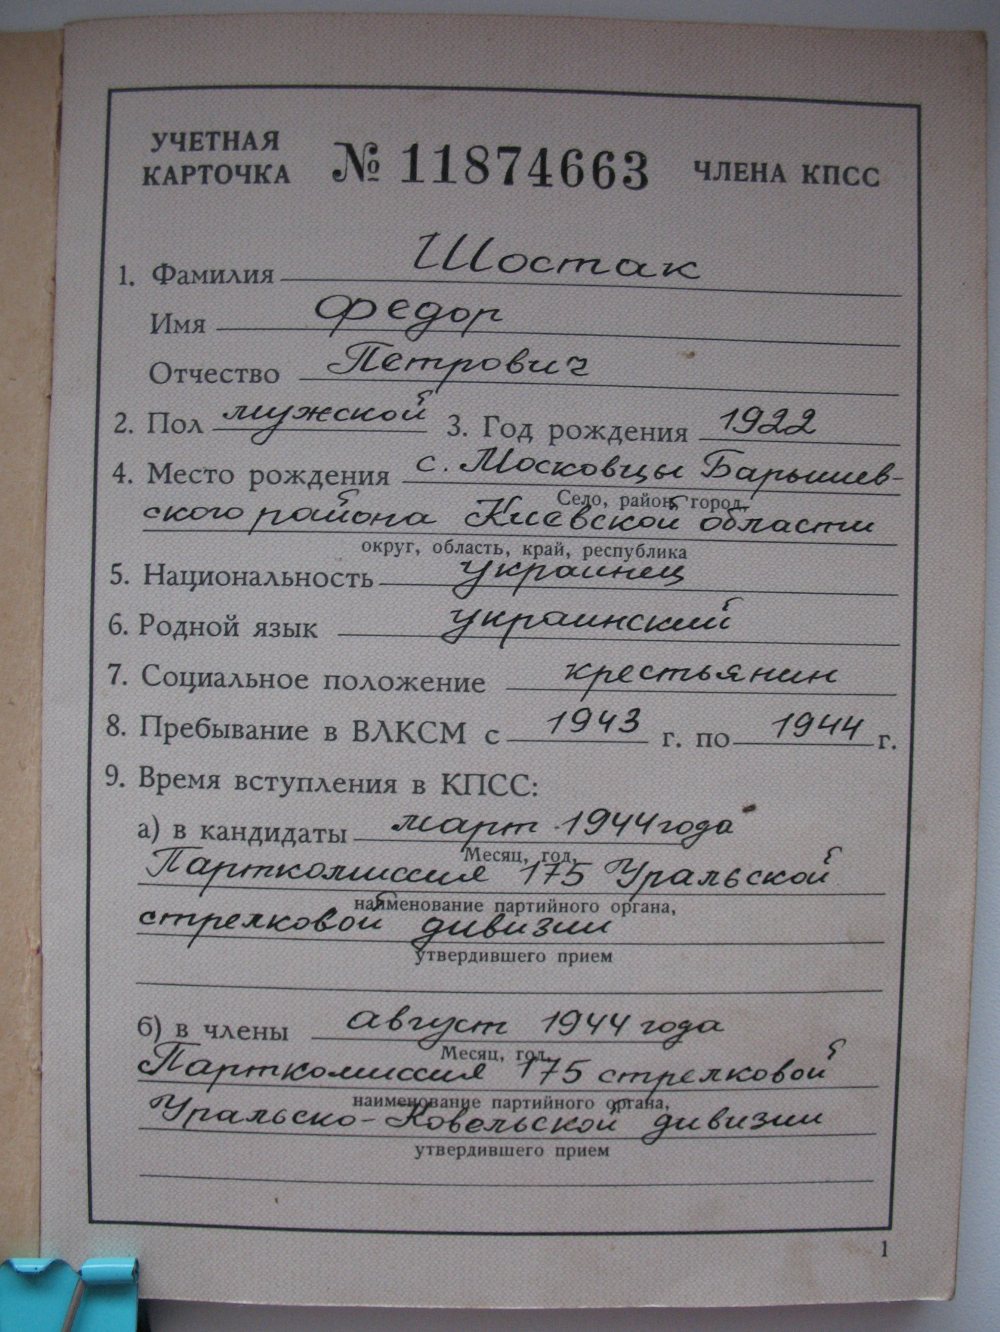 УЧЕТНАЯ КАРТОЧКА № 11874663 ЧЛЕНА КПСС
1. Фамилия Шостак
Имя Федор
Отчество Петрович
2. Пол мужской 3. Год рождения 1922
4. Место рождения с. Московцы Барышев-
Село, район, город,
ского района Киевской области
округ, область, край, республика
5. Национальность украинец
6. Родной язык украинский
7. Социальное положение крестьянин
8. Пребывание в ВЛКСМ с 1943 г. по 1944 г.
9. Время вступления в КПСС:
а) в кандидаты март 1944 года
Месяц, год,
Парткомиссия 175 Уральской
наименование партийного органа,
стрелковой дивизии
утвердившего прием
б) в члены август 1944 года
Месяц, год,
Парткомиссия 175 стрелковой
наименование партийного органа,
Уральско-Ковельской дивизии
утвердившего прием
1